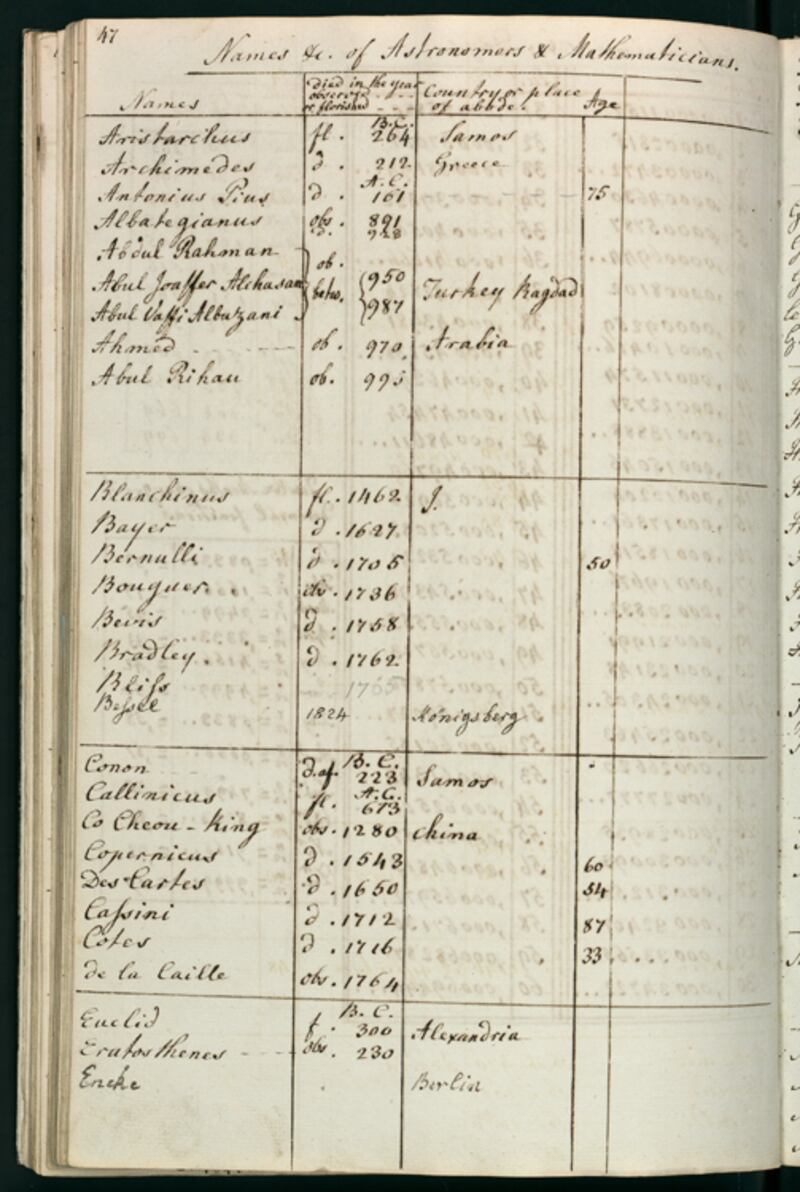 47
Names &c. of Astronomers & Mathematicians.
Names Died in the year observed or florished Country or place of abode. Age
Aristarchus fl. B.C. 264 Samos
Archimedes d. 212 Greece
Antonius Pius d. A.C. 161 75
Albategianus obs. 891
d. 928
Abdul Rahman
Abul Joaffer Alchasan ob. betw. 950 Turkey Bagdad
Abul Vaffi Albuzani 987
Ahmed ob. 970 Arabia
Abul Rihau ob. 995
Blanchinus fl. 1462 J.
Bayer d. 1627
Bernulli d. 1705 50
Bouguer. obs. 1736
Bevis d. 1758
Bradley. d. 1762
Bliss 1765
Bessel 1824 Königsberg
Conon d. af. B.C. 223 Samos
Callinicus fl. A.C. 673
Co Cheou-King obs. 1280 China
Copernicus d. 1543 60
Des Cartes d. 1650 54
Cassini d. 1712 87
Cotes d. 1716 33
de la Caille obs. 1764
Euclid f. B.C. 300 Alexandria
Eratosthenes obs. 230
Encke Berlin